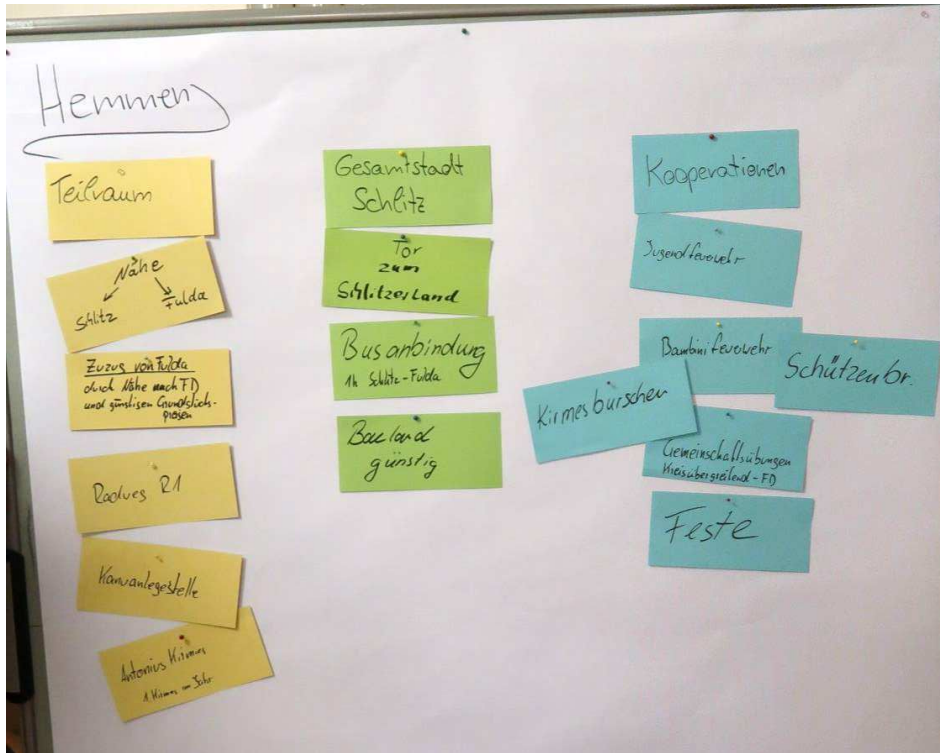 Hemmen
Teilraum
Nähe
Schlitz Fulda
Zuzug von Fulda
durch Nähe nach FD
und günstigen Grundstücks-
preisen
Radweg R1
Kanuanlegestelle
Antonius Kirmes
1. Kirmes im Jahr
Gesamtstadt
Schlitz
Tor
zum
Schlitzerland
Busanbindung
1h Schlitz-Fulda
Bauland
günstig
Kooperationen
Jugendfeuerwehr
Bambinifeuerwehr
Schützenbr.
Kirmesburschen
Gemeinschaftsübungen
Kreisübergreifend - FD
Feste